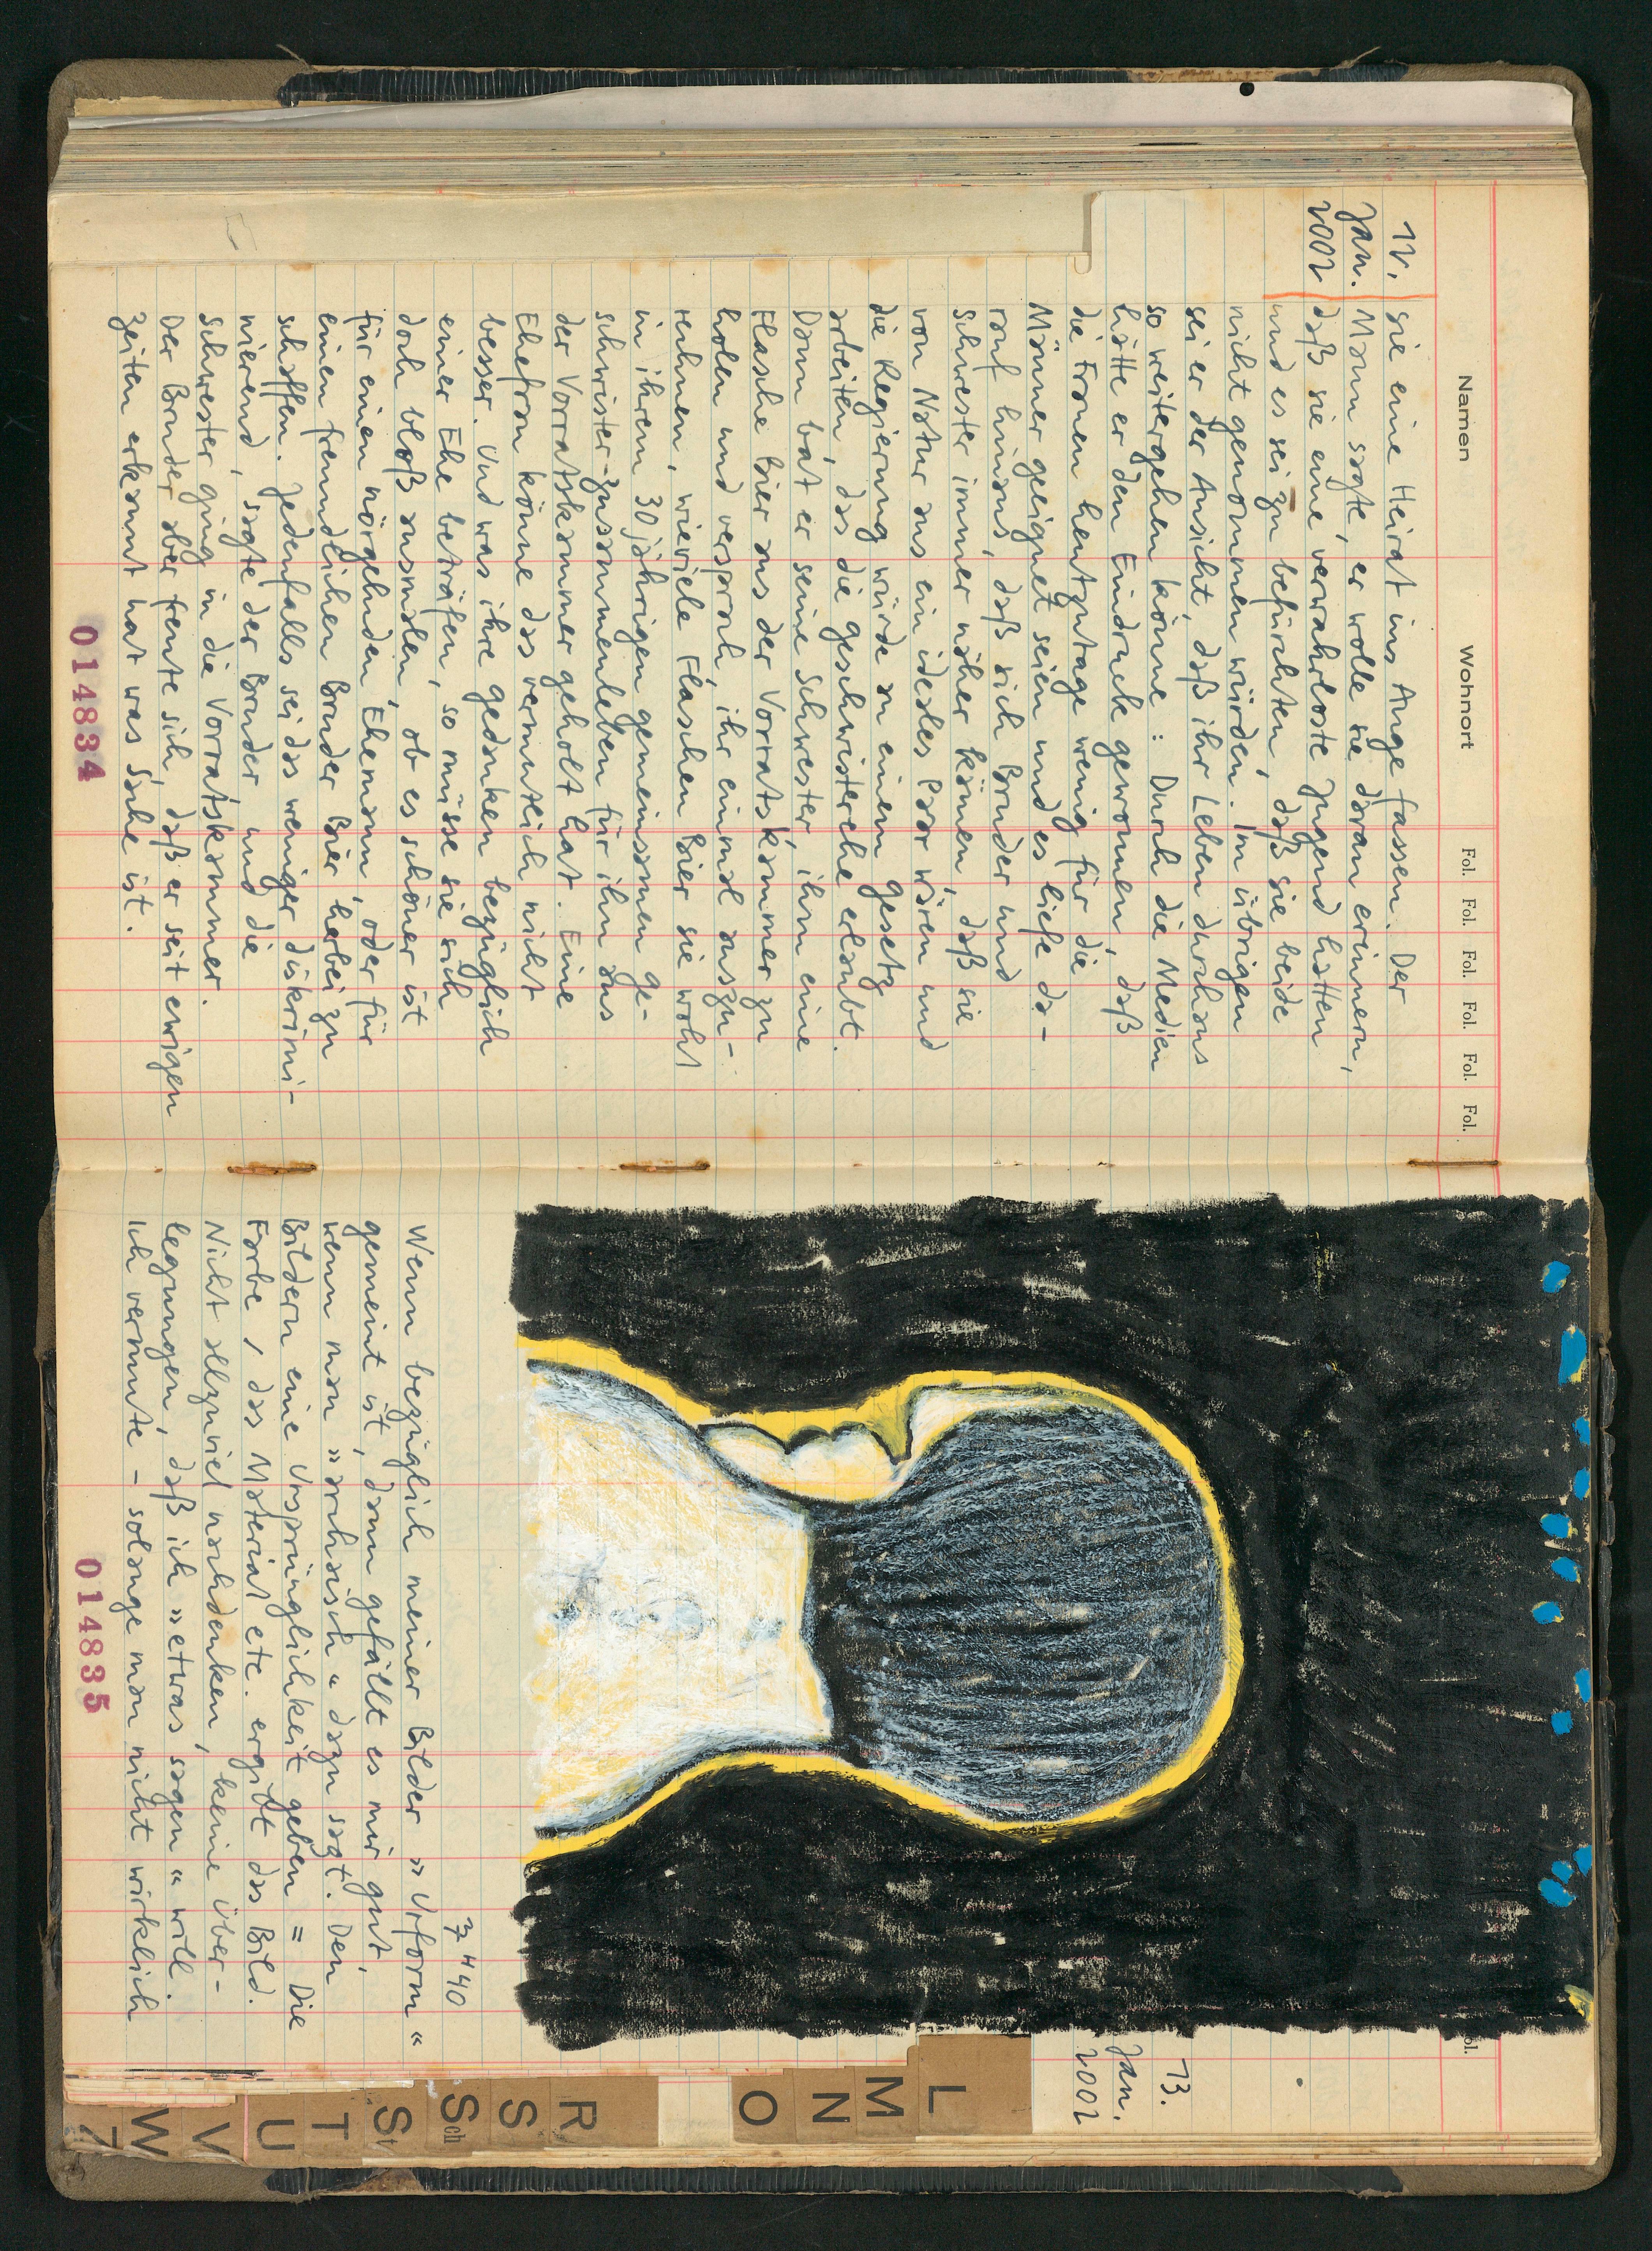 Namen Wohnort Fol. Fol. Fol. Fol. Fol. Fol.
12.
Jan.
2002
sie eine Heirat ins Auge fassen. Der
Mann sagte, er wolle sie daran erinnern,
daß sie eine verwahrloste Jugend hatten
und es sei zu befürchten, daß sie beide
nicht genommen würden. Im übrigen
sei er der Ansicht, daß ihr Leben durchaus
so weitergehen könne: Durch die Medien
hätte er den Eindruck gewonnen, daß
die Frauen heutzutage wenig für die
Männer geeignet seien und es liefe da-
rauf hinaus, daß sich Bruder und
Schwester immer näher kämen, daß sie
von Natur aus ein ideales Paar wären und
die Regierung würde an einem Gesetz
arbeiten, das die Geschwisterehe erlaubt.
Dann bat er seine Schwester, ihm eine
Flasche Bier aus der Vorratskammer zu
holen und versprach, ihr einmal auszu-
rechnen, wieviele Flaschen Bier sie wohl
in ihrem 30 jährigen gemeinsamen Ge-
schwister-Zusammenleben für ihn aus
der Vorratskammer geholt hat. Eine
Ehefrau könne das vermutlich nicht
besser. Und was ihre Gedanken bezüglich
einer Ehe beträfen, so müsse sie sich
doch bloß ausmalen, ob es schöner ist
für einen nörgelnden Ehemann, oder für
einen freundlichen Bruder Bier herbei zu
schaffen. Jedenfalls sei das weniger diskrimi-
nierend, sagte der Bruder und die
Schwester ging in die Vorratskammer.
Der Bruder aber freute sich, daß er seit ewigen
Zeiten erkannt hat was Sache ist.
014834
ol.
13.
Jan.
2002
3"40
Wenn bezüglich meiner Bilder „Urform“
gemeint ist, dann gefällt es mir gut,
wenn man „archaisch“ dazu sagt. Den
Bildern eine Ursprünglichkeit geben = Die
Farbe, das Material etc. ergibt das Bild.
Nicht allzuviel nachdenken, keine Über-
legungen, daß ich „etwas sagen“ will.
Ich vermute - solange man nicht wirklich
014835
L
M
N
O
R
S
Sch
St
T
U
V
W
Z